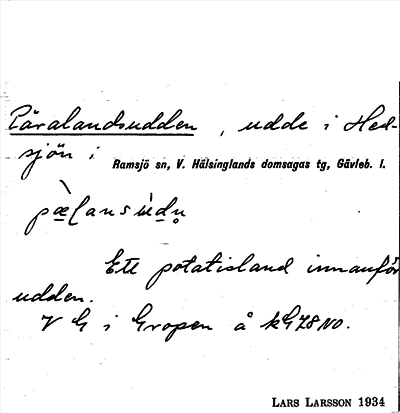 Päralandsudden, udde i Hed-
sjön i Ramsjö sn, V. Hälsinglands domsagas tg, Gävleb. l.
pæ̀lansùdn̥
Ett potatisland innanför
udden.
V G i Gropen å kG78NO.
LARS LARSSON 1934